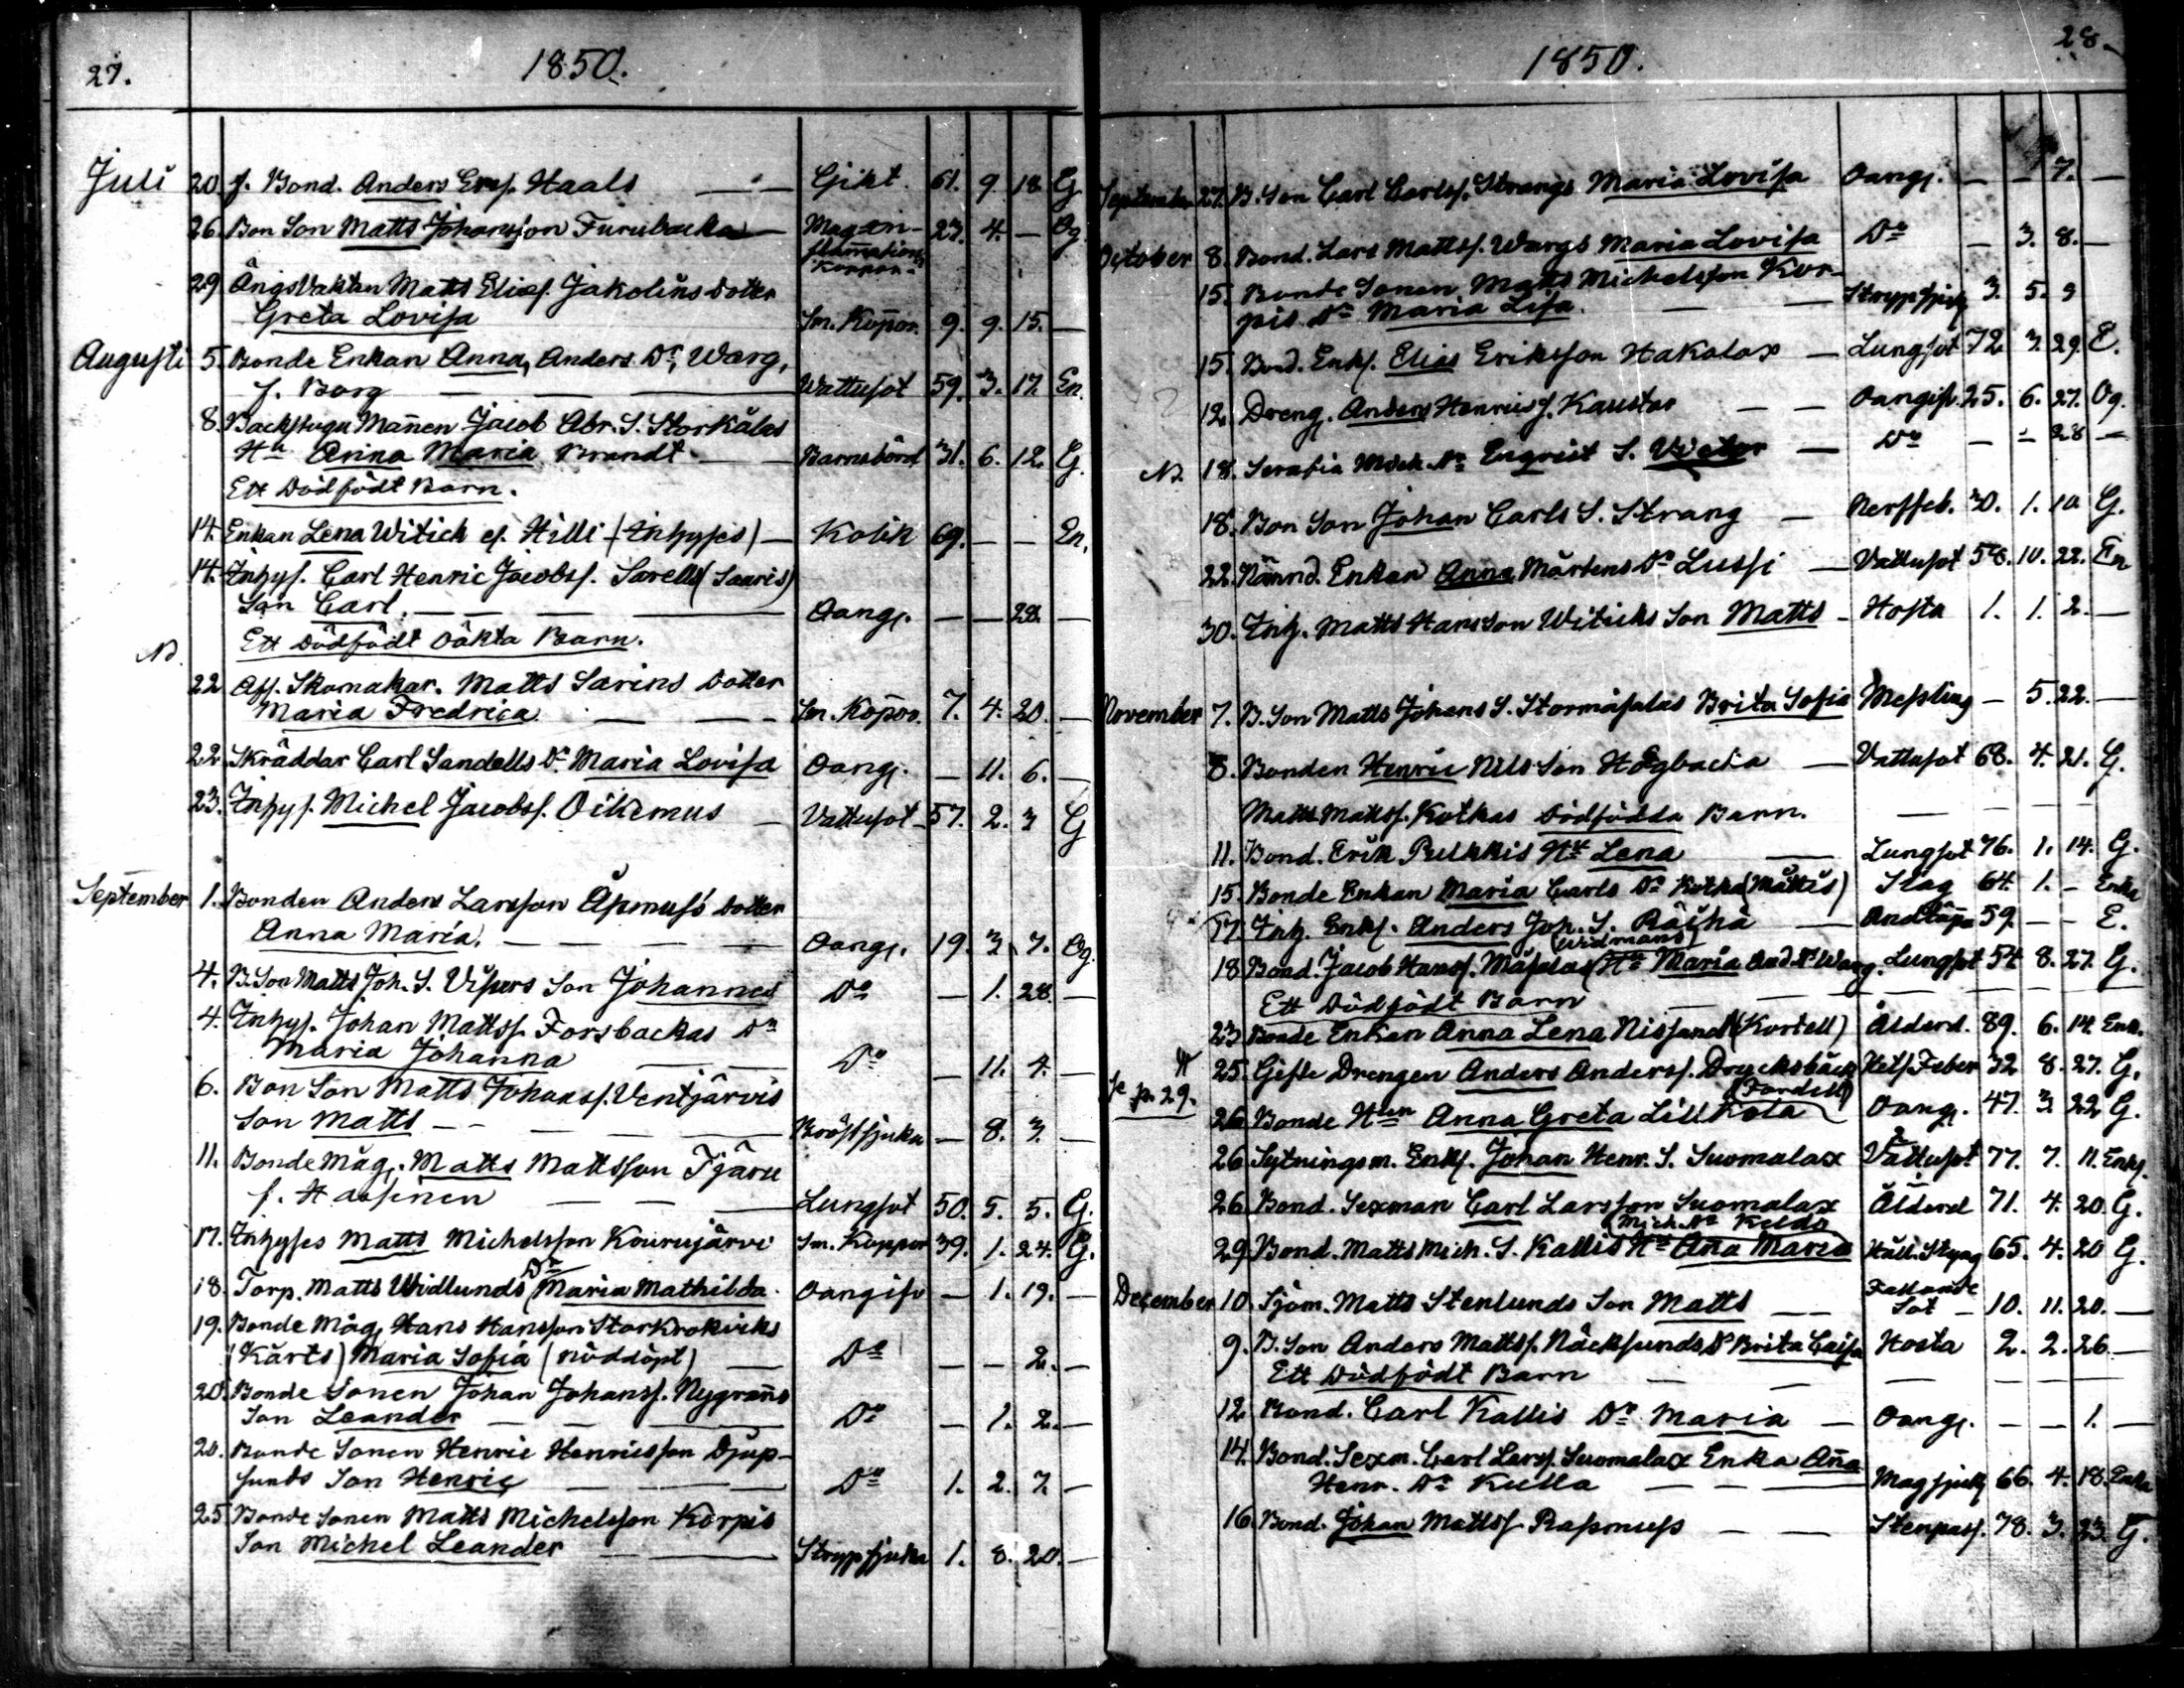 27. 1850.
Juli 20. f. Bond. Anders Ersf. Haals — Gikt. 61. 9. 18. G
26. Bon Son Matts Johansson Furubacka — Mag in- 23. 4. — Og
flam̄ation
Koppor
29. Ängsvakten Matts Eliasf. Jakolins dotter
Greta Lovisa Sm. Koppor. 9. 9. 15. —
Augusti 5. Bonde Enkan Anna, Anders. Dr, Warg,
f. Borg — Wattusot 59. 3. 17. En.
8. Backstugu Man̄en Jacob Abr. S. Storkålas
Hu Anna Maria Brandt — Barnsbörd 31. 6. 12. G.
Ett Dödfödt Barn.
14. Enkan Lena Witick ef. Hilli (Inhyses) — Kolik 69. — — En.
14. Inhys. Carl Henric Jacobsf. Sarells (Saaris)
Son Carl. — Oang. — — 28. —
Ett Dödfödt Oäkta Barn.
N.
22. Afs. Skomakar. Matts Sarins dotter
Maria Fredrica — Sm. Koppor. 7. 4. 20. —
22. Skräddar Carl Sandells Dr Maria Lovisa Oang. — 11. 6. —
23. Inhys. Michel Jacobsf. Oikemus — Vattusot 57. 2. 3 G
September 1. Bonden Anders Larsson Åsmuss dotter
Anna Maria. — Oang. 19. 3. 7. Og
4. B. Son Matts Joh. S. Vispers Son Johannes Do — 1. 28. —
4. Inhys. Johan Mattsf. Forsbackas Dr
Maria Johanna — Do — 11. 4. —
6. Bon Son Matts Johansf. Ventjärvis
Son Matts — Bröstsjuka — 8. 3. —
11. Bonde Måg. Matts Mattsson Fjäru
f. Hassinen — Lungsot 50. 5. 5. G.
17. Inhyses Matts Michelsson Kourujärvi Sm. Koppor 39. 1. 24. G.
18. Torp. Matts Widlunds Dr Maria Mathilda. Oangifv — 1. 19. —
19. Bonde Måg Hans Hansson Storkrokviks
(Kårts) Maria Sofia (nöddöpt) — Do — — 2. —
20. Bonde Sonen Johan Johansf. Nygran̄s
Son Leander — Do — 1. 2. —
20. Bonde Sonen Henric Henricsson Djup-
sunds Son Henric — Do 1. 2. 7. —
25. Bonde Sonen Matts Michelsson Korpis
Son Michel Leander — Strypsjuka 1. 8. 20. —
1850. 28.
September 27. B. Son Carl Carlsf. Strangs Maria Lovisa Oang. — — 7. —
October 8. Bond. Lars Mattsf. Wargs Maria Lovisa Do — 3. 8. —
15. Bonde Sonen Matts Michelsson Kor-
pis Dr Maria Lisa. — Strypsjuk 3. 5. 9
15. Bond. Enkf. Elias Eriksson Hakalax — Lungsot 72. 3. 29. E.
12. Dreng. Anders Henricsf. Kaustar — Oangifv. 25. 6. 27. Og.
N. 18. Serafia Mich. Dr Enqvist S. Victor — Do — — 28 —
18. Bon Son Johan Carls S. Strang — Nerffeb. 30. 1. 10 G.
22. Nämnd. Enkan Anna Mårtens Dr Lussi — Vattusot 58. 10. 22. En
30. Inh. Matts Hansson Witicks Son Matts — Hosta 1. 1. 2. —
November 7. B. Son Matts Johans S. Stormåsalas Brita Sofia Messling — 5. 22. —
8. Bonden Henric Nils Son Högbacka — Vattusot 68. 4. 21. G.
Matts Mattsf. Kotkas Dödfödda Barn. — — — —
11. Bond. Erik Pulkkis Hu Lena — Lungsot 76. 1. 14. G.
15. Bonde Enkan Maria Carls Dr Kotka (Mattis) Slag 64. 1. — Enka
17. Inh. Enkf. Anders Joh. S. Räihä — Andtäpa 59. — — E.
(Widmans)
18. Bond. Jacob Hansf. Måsalas Hu Maria And. Dr Warg. Lungsot 54. 8. 27. G.
Ett Dödfödt Barn — — — —
23. Bonde Enkan Anna Lena Nissund (Kortell) Ålderd. 89. 6. 14 Enk.
25. Gifte Drengen Anders Andersf. Drycksbäck Het. Feber 32 8. 27. G.
Se p. 29. (Fordell)
26. Bonde Hun Anna Greta Lill Kola Oang. 47. 3. 22 G.
26. Sytningsm. Enkf. Johan Henr. S. Suomalax Vattusot 77. 7. 11. Enkf.
26. Bond. Sexman Carl Larsson Suomalax Ålderd 71. 4. 20 G.
Mich. Dr Keldo
29. Bond. Matts Mich. S. Kallis Hu An̄a Maria Håll. Styng 65. 4. 20 G.
December 10. Sjöm. Matts Stenlunds Son Matts — Fallande
Sot — 10. 11. 20. —
9. B. Son Anders Mattsf. Näcksunds Dr Brita Caisa Hosta 2. 2. 26. —
Ett Dödfödt Barn — — — —
12. Bond. Carl Kallis Dr Maria — Oang. — — 1. —
14. Bond. Sexm. Carl Larsf. Suomalax Enka An̄a
Henr. Dr Kulla — Magsjuk 66. 4. 18. Enka
16. Bond. Johan Mattsf. Rasmuss — Stenpass. 78. 3. 23. G.